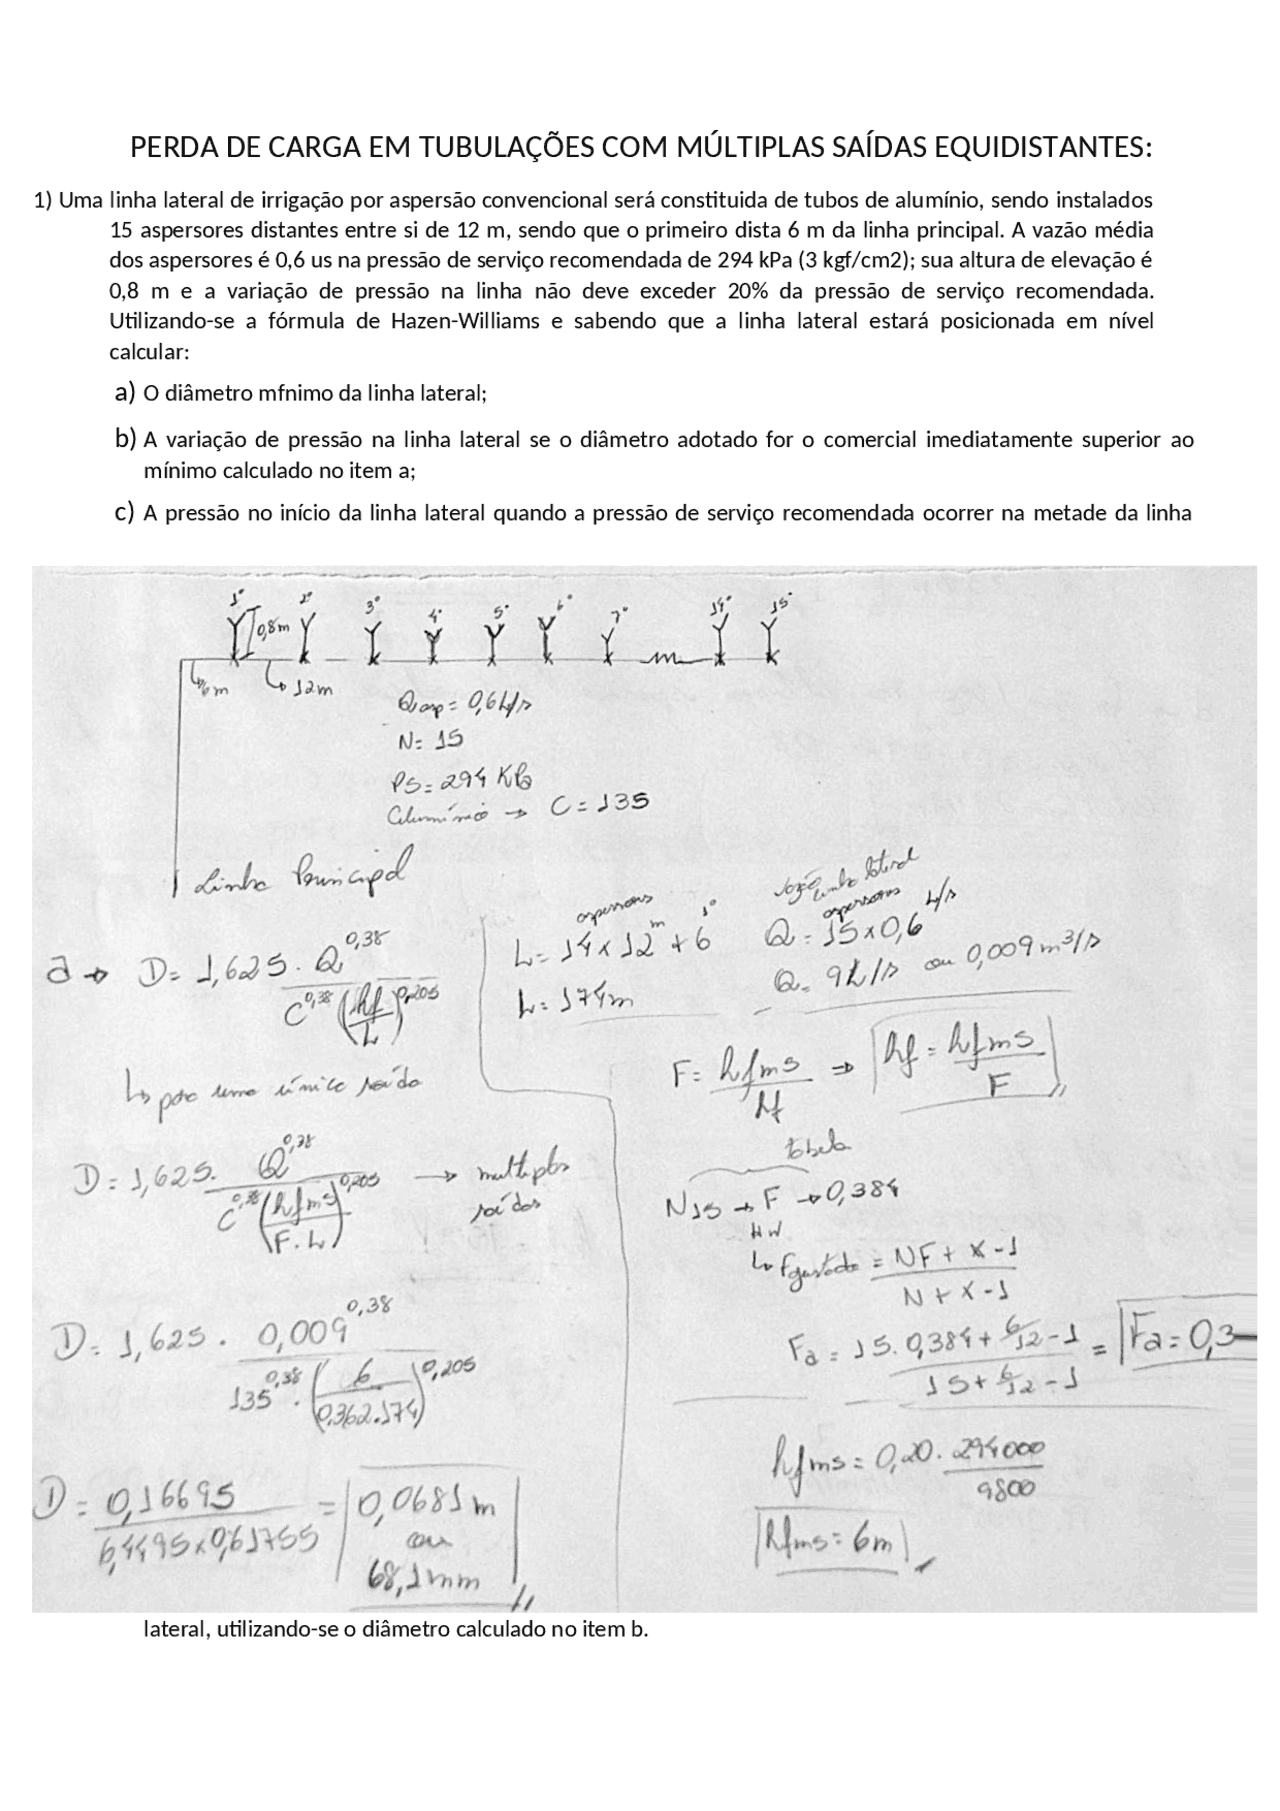 PERDA DE CARGA EM TUBULAÇÕES COM MÚLTIPLAS SAÍDAS EQUIDISTANTES:
1) Uma linha lateral de irrigação por aspersão convencional será constituida de tubos de alumínio, sendo instalados
15 aspersores distantes entre si de 12 m, sendo que o primeiro dista 6 m da linha principal. A vazão média
dos aspersores é 0,6 us na pressão de serviço recomendada de 294 kPa (3 kgf/cm2); sua altura de elevação é
0,8 m e a variação de pressão na linha não deve exceder 20% da pressão de serviço recomendada.
Utilizando-se a fórmula de Hazen-Williams e sabendo que a linha lateral estará posicionada em nível
calcular:
a) O diâmetro mfnimo da linha lateral;
b) A variação de pressão na linha lateral se o diâmetro adotado for o comercial imediatamente superior ao
mínimo calculado no item a;
c) A pressão no início da linha lateral quando a pressão de serviço recomendada ocorrer na metade da linha
1° 2° 3° 4° 5° 6° 7° 14° 15°
0,8m
6m 12m
Qasp = 0,6 L/s
N= 15
PS= 294 KPa
Alumínio → C = 135
Linha Principal
aspersores 1°
L= 14 x 12m + 6
L= 174m
vazão linha lateral
aspersores
Q = 15 x 0,6 L/s
Q= 9L/s ou 0,009 m³/s
a → D= 1,625 . Q^0,38 / C^0,38 (hf/L)^0,205
↳ para uma única saída
F= hfms / hf ⇒ hf = hfms / F
D= 1,625. Q^0,38 / C^0,38 (hfms / F.L)^0,205 → multiplas saídas
tabela
N15 → F → 0,384
HW
↳ Fajustado = NF + X - 1 / N + X - 1
Fa = 15. 0,384 + 6/12 - 1 / 15 + 6/12 - 1 = Fa = 0,3
D= 1,625 . 0,009^0,38 / 135^0,38 . (6 / 0,362.174)^0,205
hfms = 0,20 . 294000 / 9800
hfms = 6m
D = 0,16695 / 6,4495 x 0,61755 = 0,0681 m
ou
68,1mm
lateral, utilizando-se o diâmetro calculado no item b.